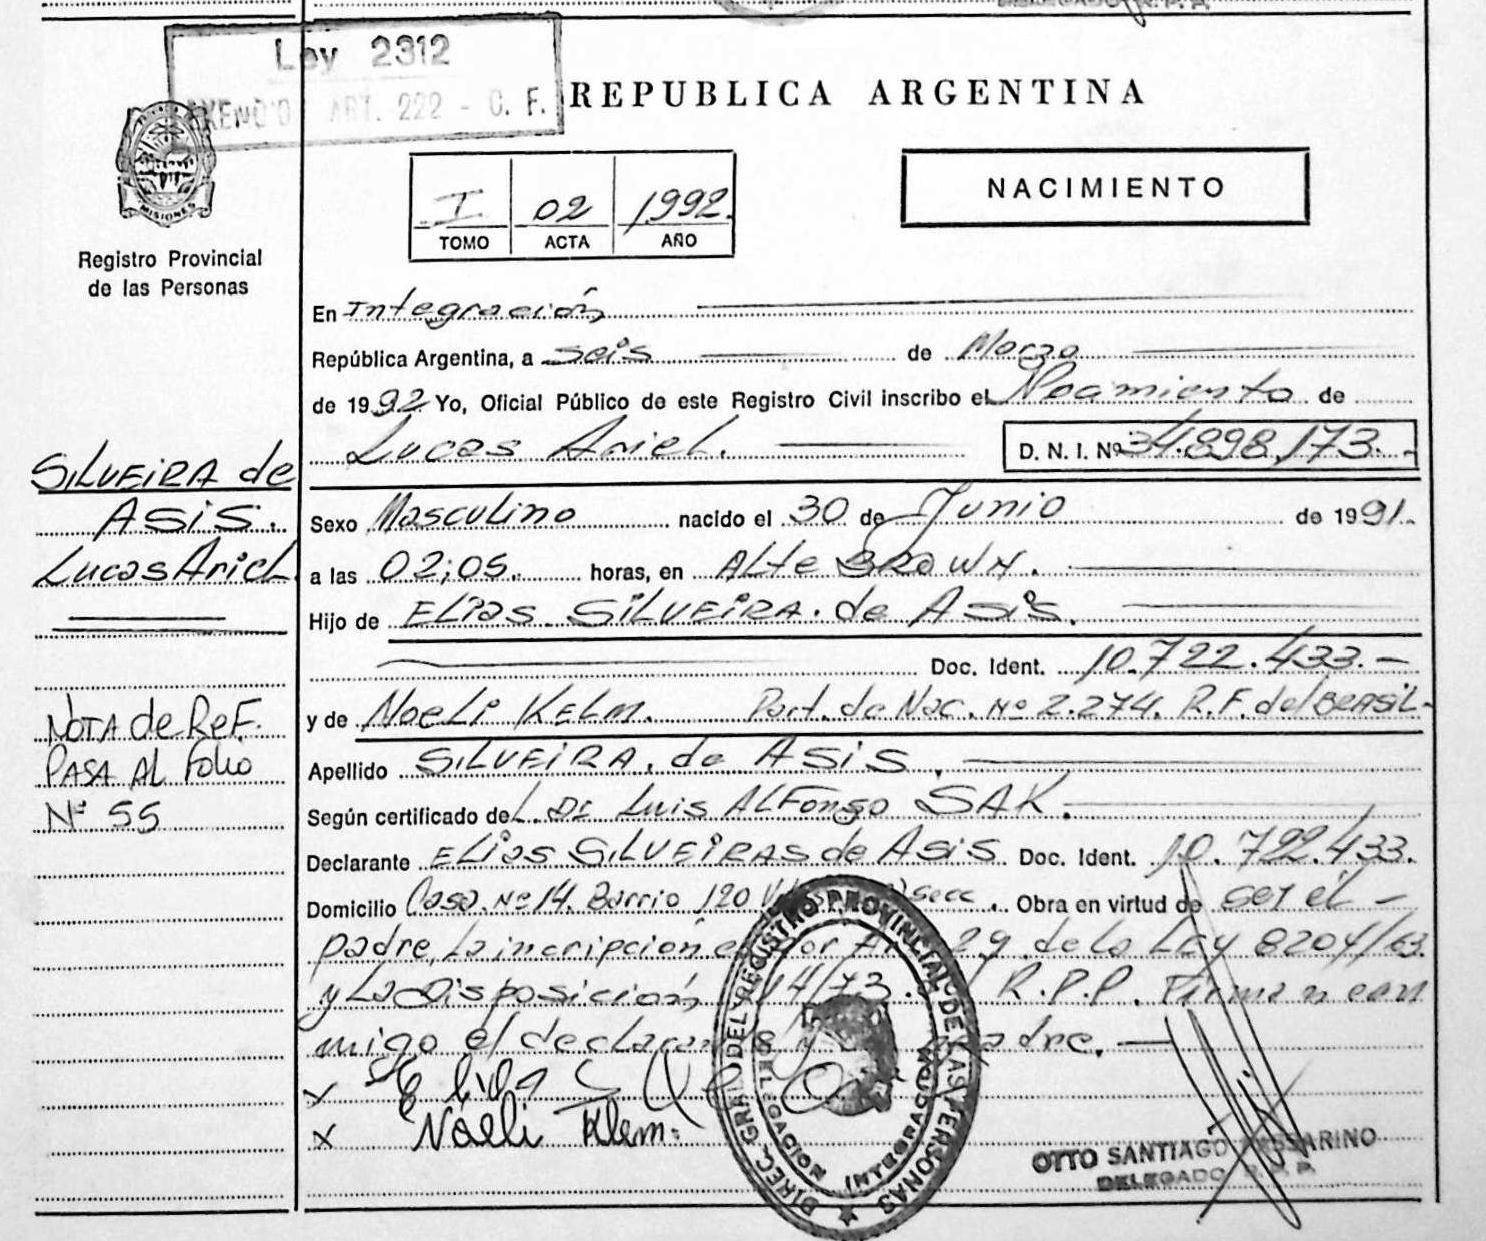 Ley 2312
ART. 222 - C. F.
REPUBLICA ARGENTINA
MISIONES
Registro Provincial
de las Personas
I 02 1992.
TOMO ACTA AÑO
NACIMIENTO
En Integración
República Argentina, a seis de Marzo
de 1992 Yo, Oficial Público de este Registro Civil inscribo el Nacimiento de
Lucas Ariel. D. N. I. Nº 34.898.173.-
SILVEIRA de
ASIS.
Lucas Ariel
Sexo Masculino nacido el 30 de Junio de 1991.
a las 02;05. horas, en ALte BROWN.
Hijo de ELIAS SILVEIRA. de ASIS.
Doc. Ident. 10.722.433.-
y de Noeli KELM. Part. de Nac. Nº 2.274. R.F. del BRASIL-
NOTA de REF.
PASA AL FOLIO
Nº 55
Apellido SILVEIRA. de ASIS.
Según certificado del. Luis ALFONSO SAK.
Declarante ELIAS SILVEIRAS de ASIS Doc. Ident. 10.722.433.
Domicilio Casa. Nº 14. Barrio 120 Obra en virtud de ser el -
padre, La incripción 29 de la Ley 8204/63.
y La Disposición 14/73. R.P.P. Firma n con
migo el declaran dre.-
x Elias
x Noeli Klem.
DIREC. GRAL. DEL REGISTRO PROVINCIAL DE LAS PERSONAS
DELEGACION INTEGRACION
OTTO SANTIAGO
DELEGADO R.P.P.